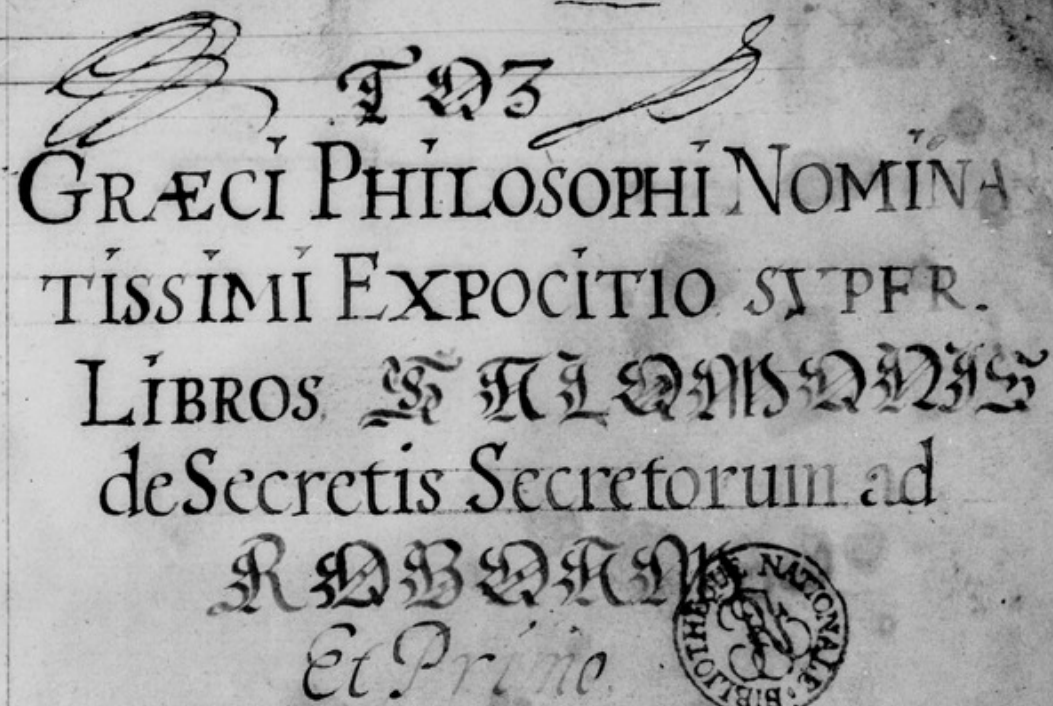 TOZ
GRÆCI PHILOSOPHI NOMINA
TISSIMI EXPOCITIO SUPER.
LIBROS SALOMONIS
de Secretis Secretorum ad
ROBOAM
Et Primo.
BIBLIOTHEQUE NATIONALE